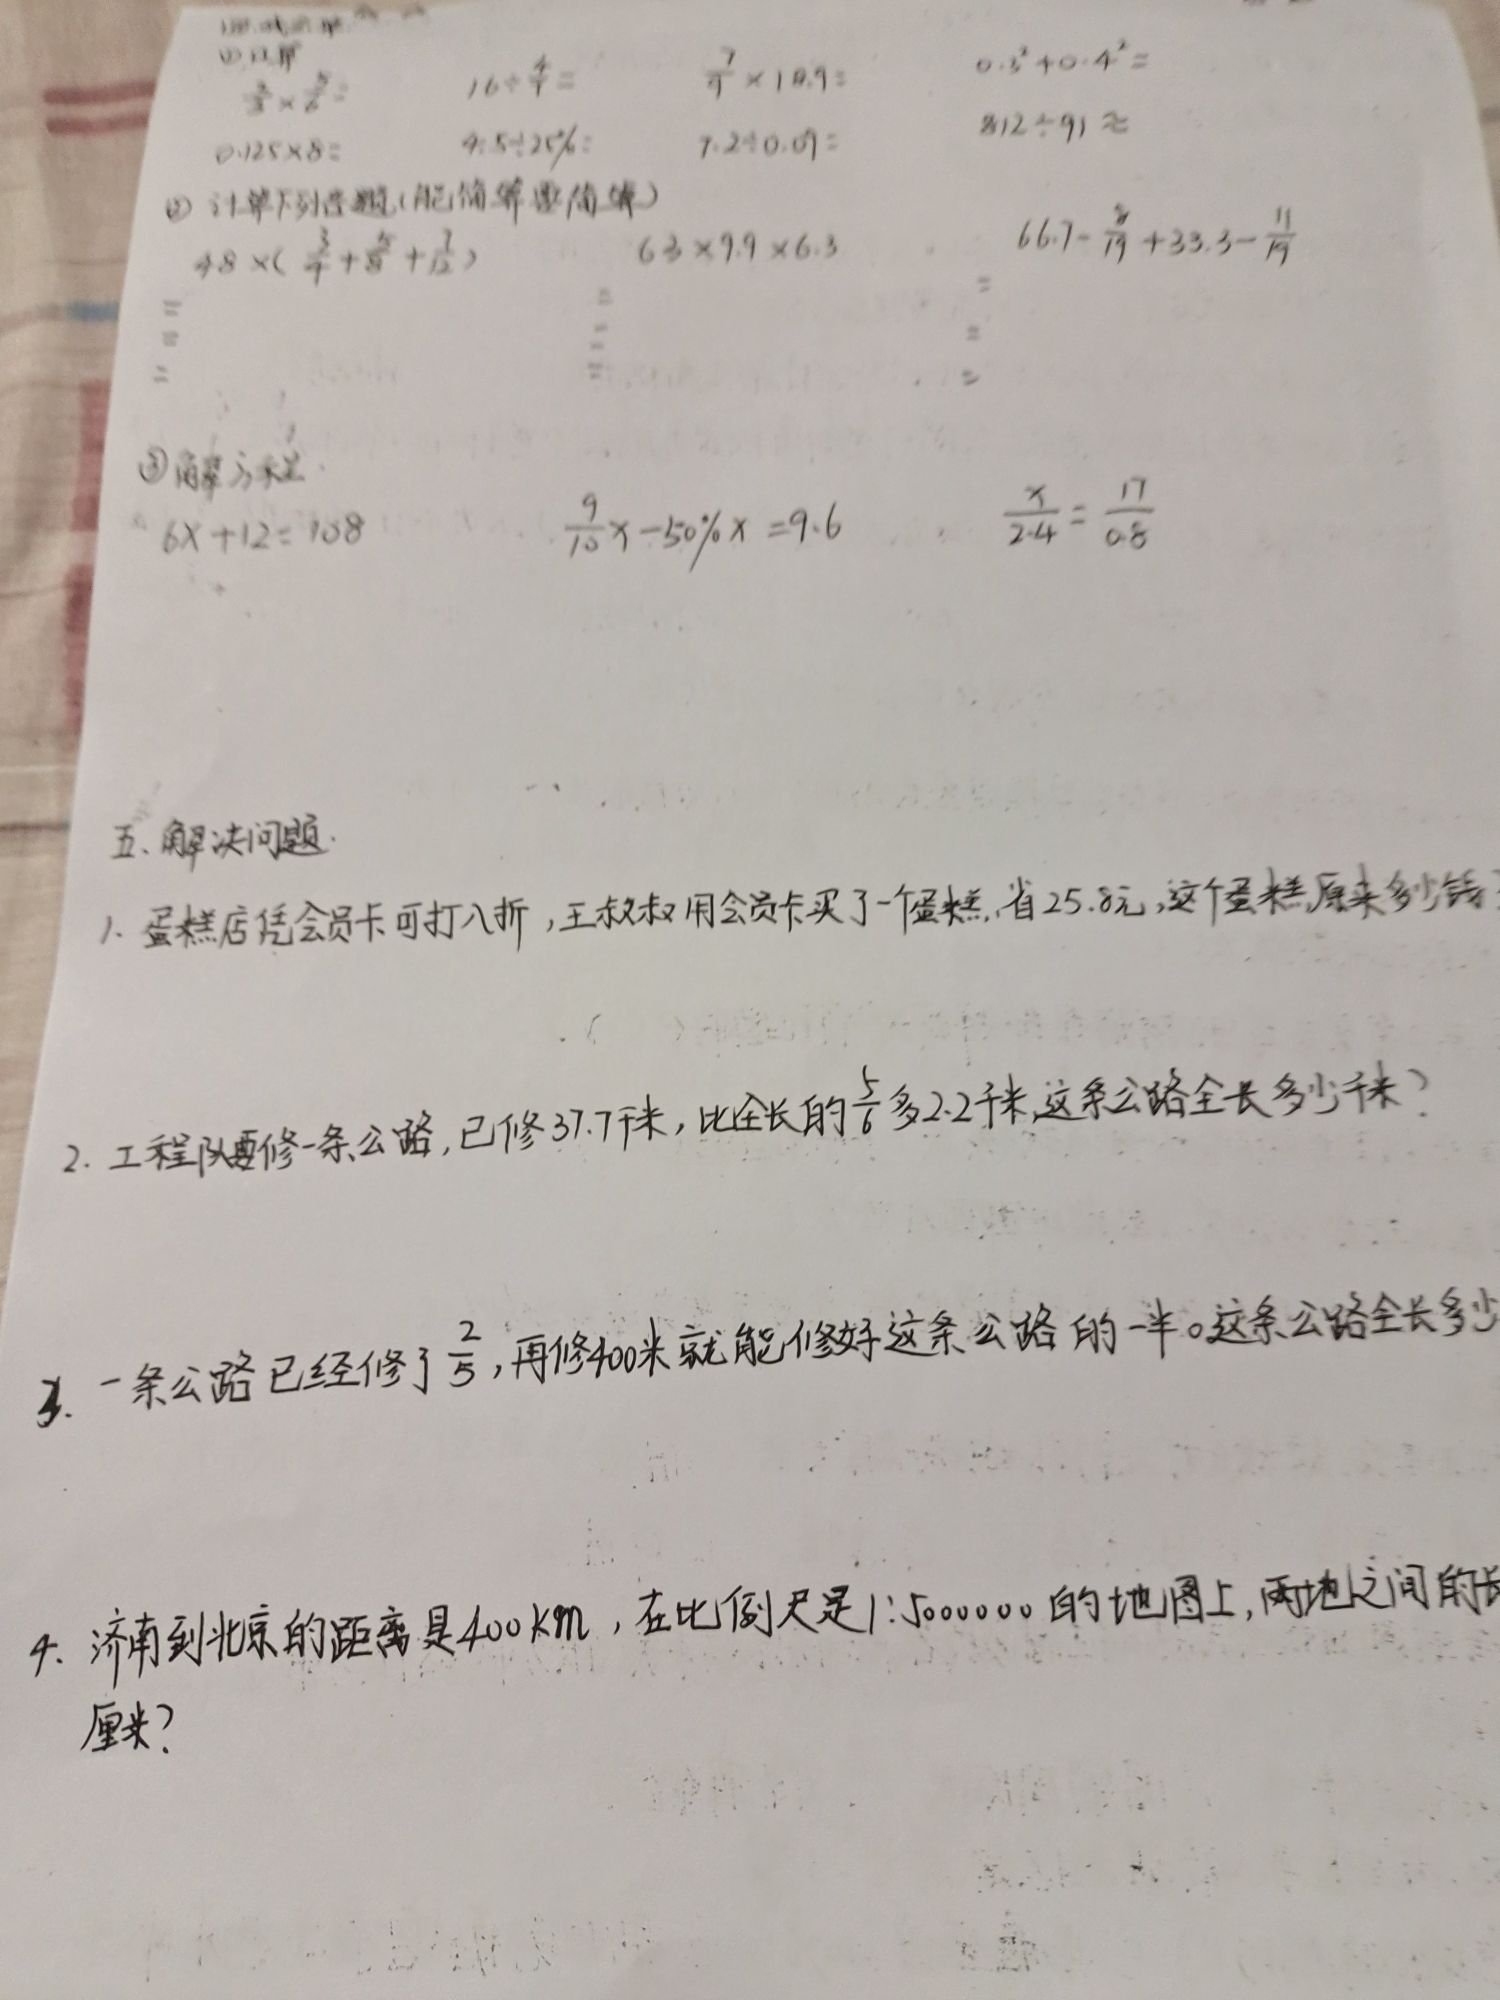 ① 口算
16÷4/7=
0.3²+0.4²=
0.125×8= 4.5÷25%= 7.2÷0.09= 812÷91≈
② 计算下列各题(能简算要简算)
48×(3/4+5/8+7/12) 63×9.9×6.3 66.7-8/19+33.3-11/19
= = =
= = =
= = =
③解方程
6x+12=108 9/10x-50%x=9.6 x/2.4=17/0.8
五、解决问题.
1. 蛋糕店凭会员卡可打八折,王叔叔用会员卡买了一个蛋糕,省25.8元,这个蛋糕原来多少钱?
2. 工程队要修一条公路,已修37.7千米,比全长的5/6多2.2千米,这条公路全长多少千米?
3. 一条公路已经修了2/5,再修400米就能修好这条公路的一半。这条公路全长多少
4. 济南到北京的距离是400km,在比例尺是1:5000000的地图上,两地之间的长
厘米?